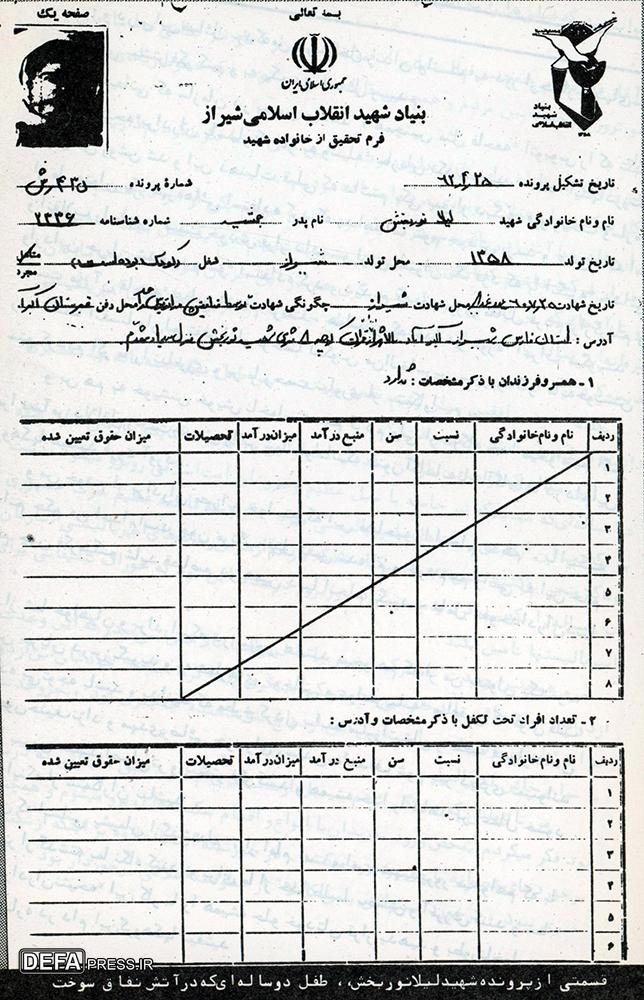 صفحه یک
بسمه تعالی
جمهوری اسلامی ایران
بنیاد شهید انقلاب اسلامی
بنیاد شهید انقلاب اسلامی شیراز
فرم تحقیق از خانواده شهید
تاریخ تشکیل پرونده شمارهٔ پرونده
نام و نام خانوادگی شهید لیلا نوربخش نام پدر جمشید شماره شناسنامه ۲۲۳۶
تاریخ تولد ۱۳۵۸ محل تولد شیراز شغل کودک بوده است متأهل مجرد
تاریخ شهادت محل شهادت شیراز چگونگی شهادت توسط منافقین محل دفن قبرستان
آدرس: استان فارس شیراز
۱ - همسر و فرزندان با ذکر مشخصات: ندارد
ردیف نام و نام خانوادگی نسبت سن منبع درآمد میزان درآمد تحصیلات میزان حقوق تعیین شده
۱
۲
۳
۴
۵
۶
۷
۸
۲ - تعداد افراد تحت تکفل با ذکر مشخصات و آدرس:
ردیف نام و نام خانوادگی نسبت سن منبع درآمد میزان درآمد تحصیلات میزان حقوق تعیین شده
۱
۲
۳
۴
۵
۶
DEFAPRESS.IR
قسمتی از پرونده شهید لیلا نوربخش، طفل دو ساله ای که در آتش نفاق سوخت